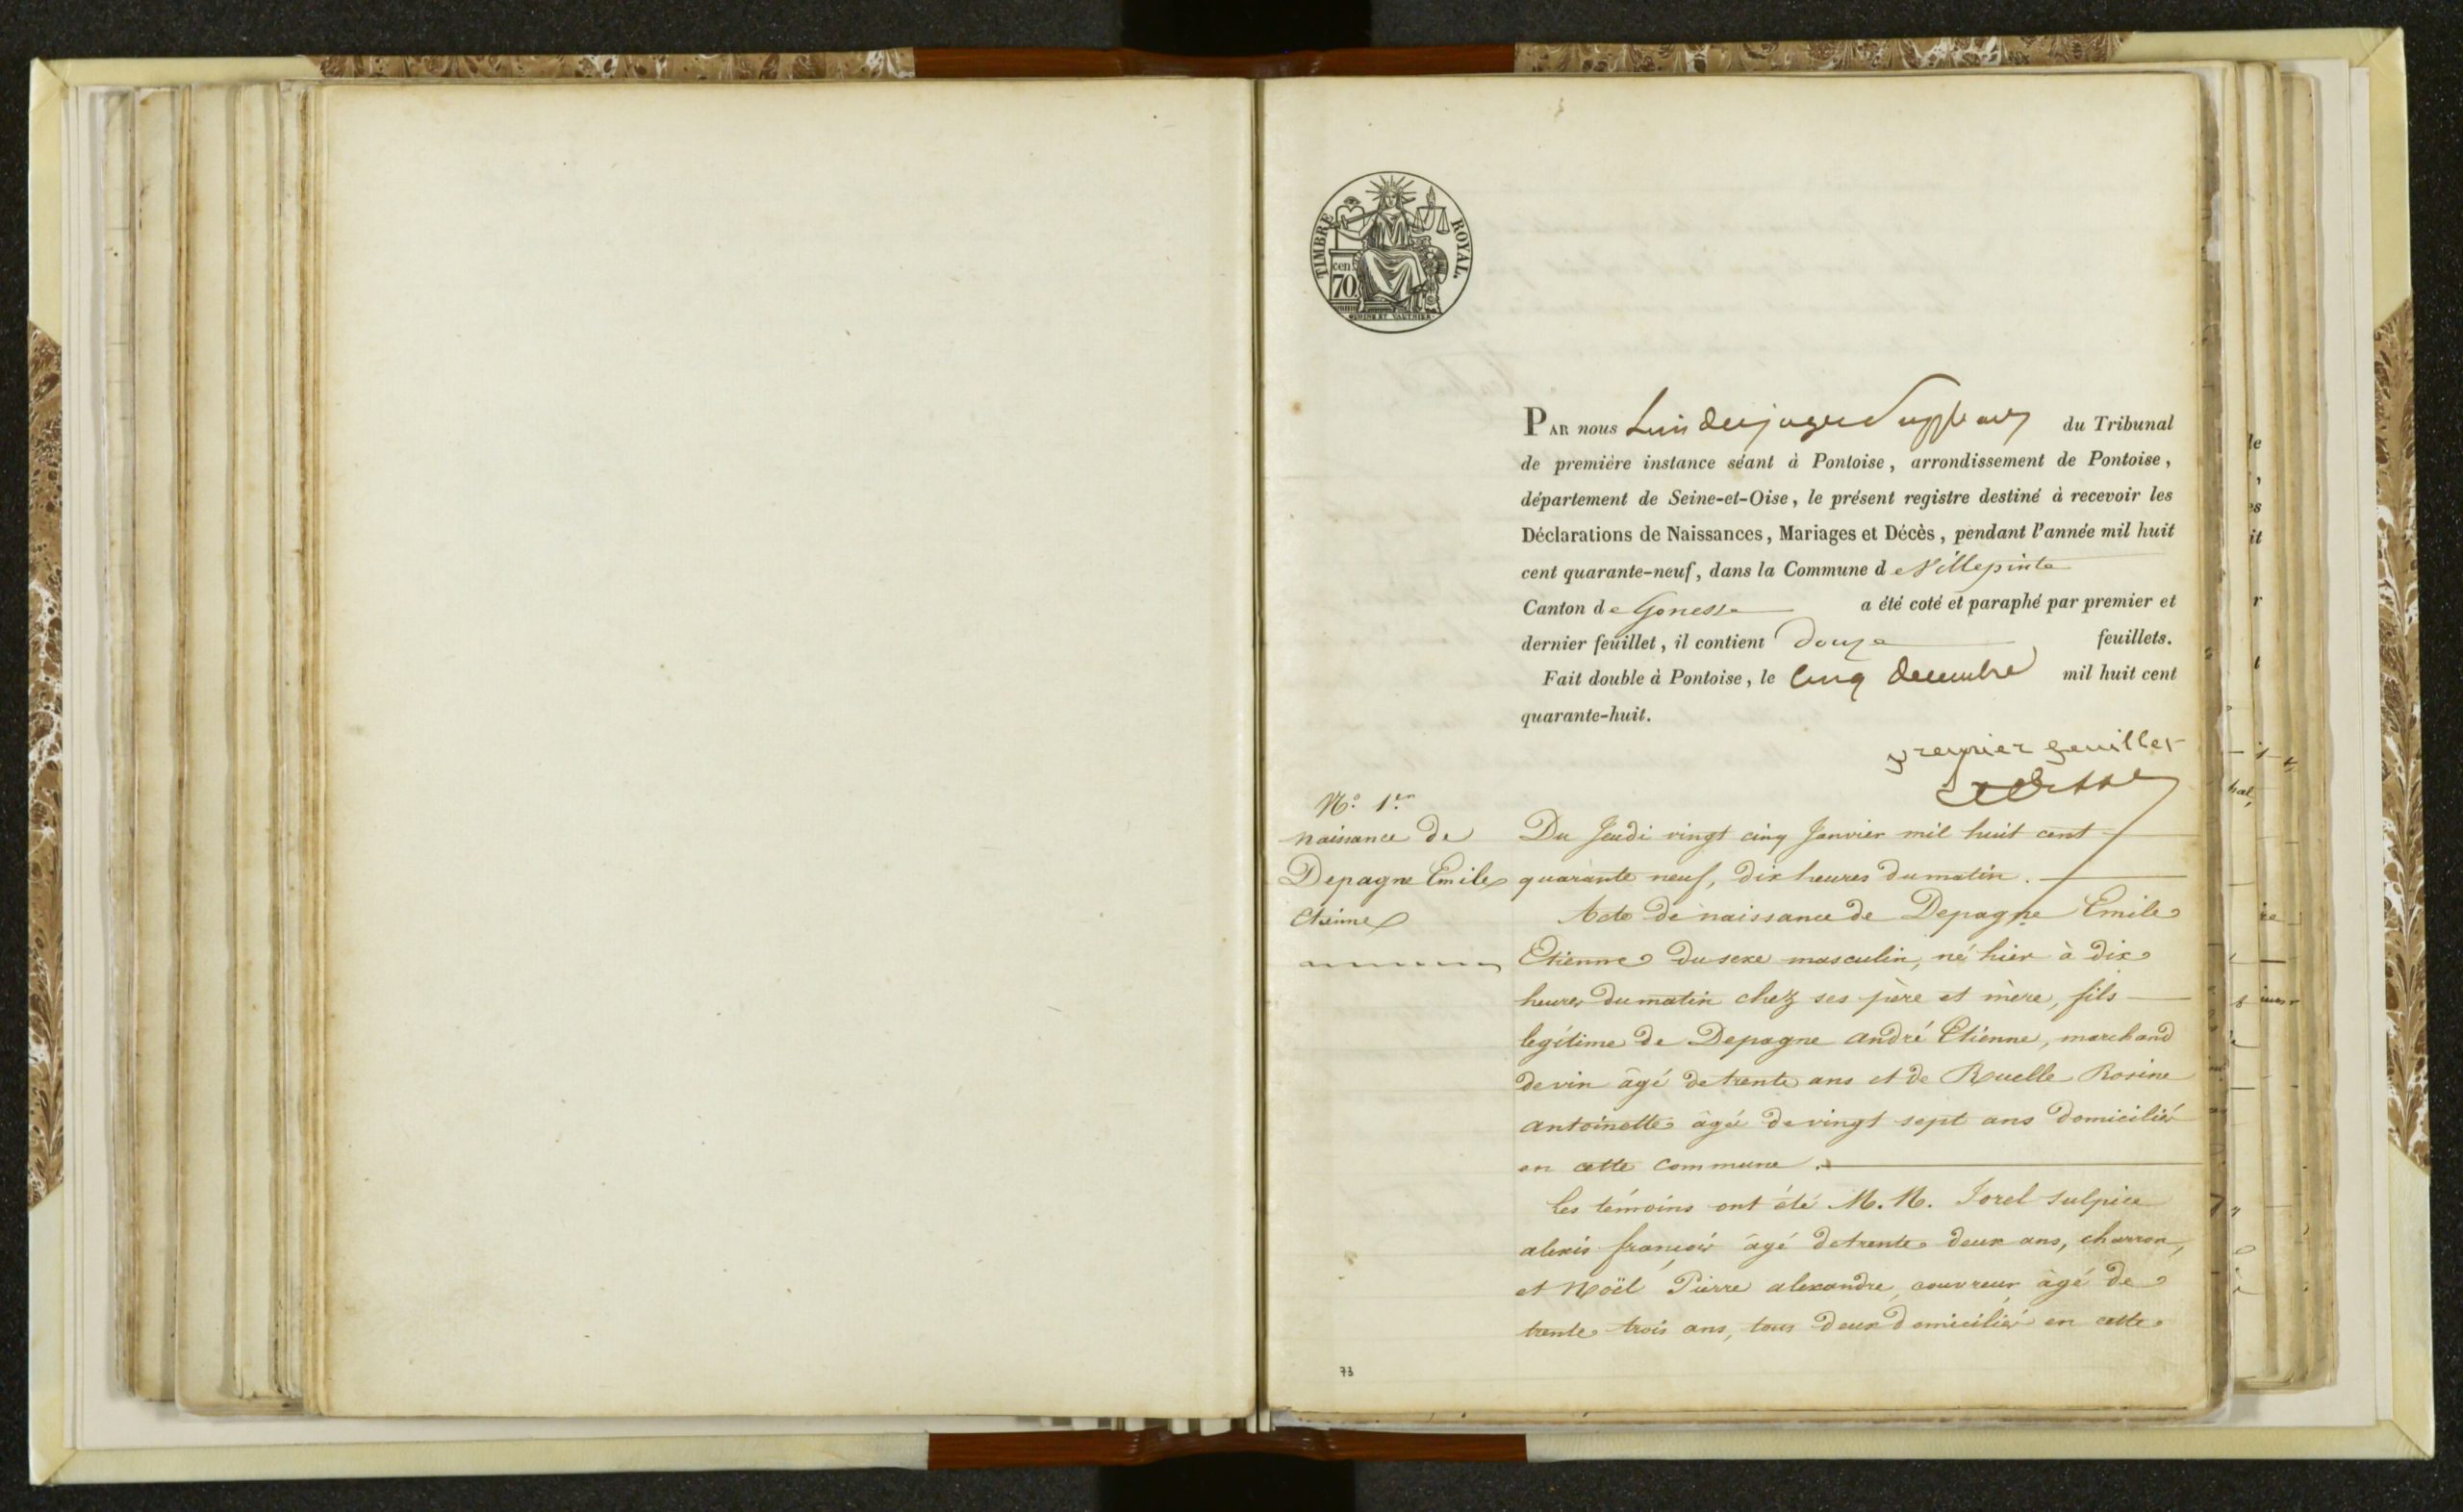 TIMBRE ROYAL
cen.
70
PAR nous L'un des juges Suppléans du Tribunal
de première instance séant à Pontoise, arrondissement de Pontoise,
département de Seine-et-Oise, le présent registre destiné à recevoir les
Déclarations de Naissances, Mariages et Décès, pendant l'année mil huit
cent quarante-neuf, dans la Commune de Villepinte
Canton de Gonesse a été coté et paraphé par premier et
dernier feuillet, il contient douze feuillets.
Fait double à Pontoise, le cinq decembre mil huit cent
quarante-huit.
premier feuillet
N.o 1.er
naissance de
Depagne Emile
Etienne
Du Jeudi vingt cinq Janvier mil huit cent
quarante neuf, dix heures du matin.
Acte de naissance de Depagne Emile
Etienne du sexe masculin, né hier à dix
heures du matin chez ses père et mère, fils
legitime de Depagne andré Etienne, marchand
de vin âgé de trente ans et de Ruelle Rosine
antoinette âgée de vingt sept ans domiciliés
en cette commune.
Les témoins ont été M.M. Jorel Sulpice
alexis françois âgé de trente deux ans, charron,
et Noël Pierre alexandre, couvreur âgé de
trente trois ans, tous deux domiciliés en cette
73